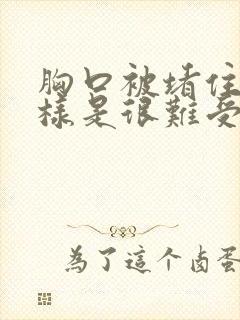 胸口被堵住
样是很難受
為了這个卤蛋